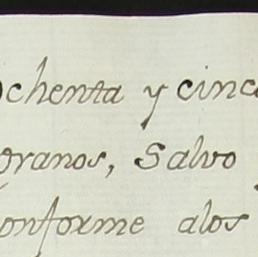 ochenta y cinc
granos, Salvo
onforme alos